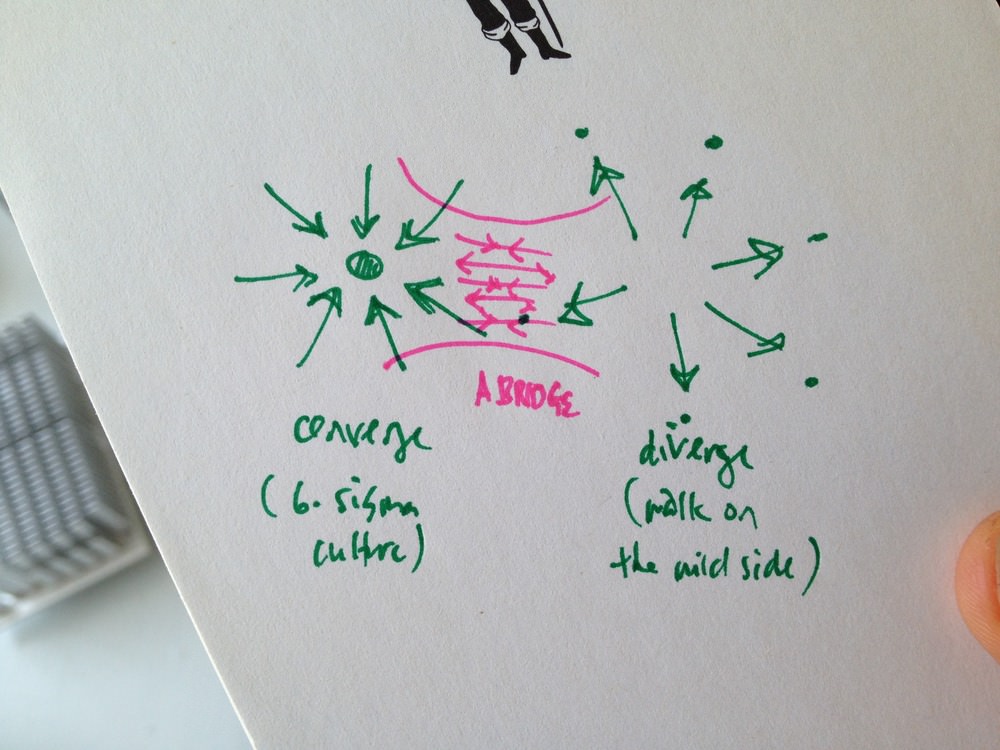 A BRIDGE
converge
(6. sigma
culture)
diverge
(walk on
the wild side)